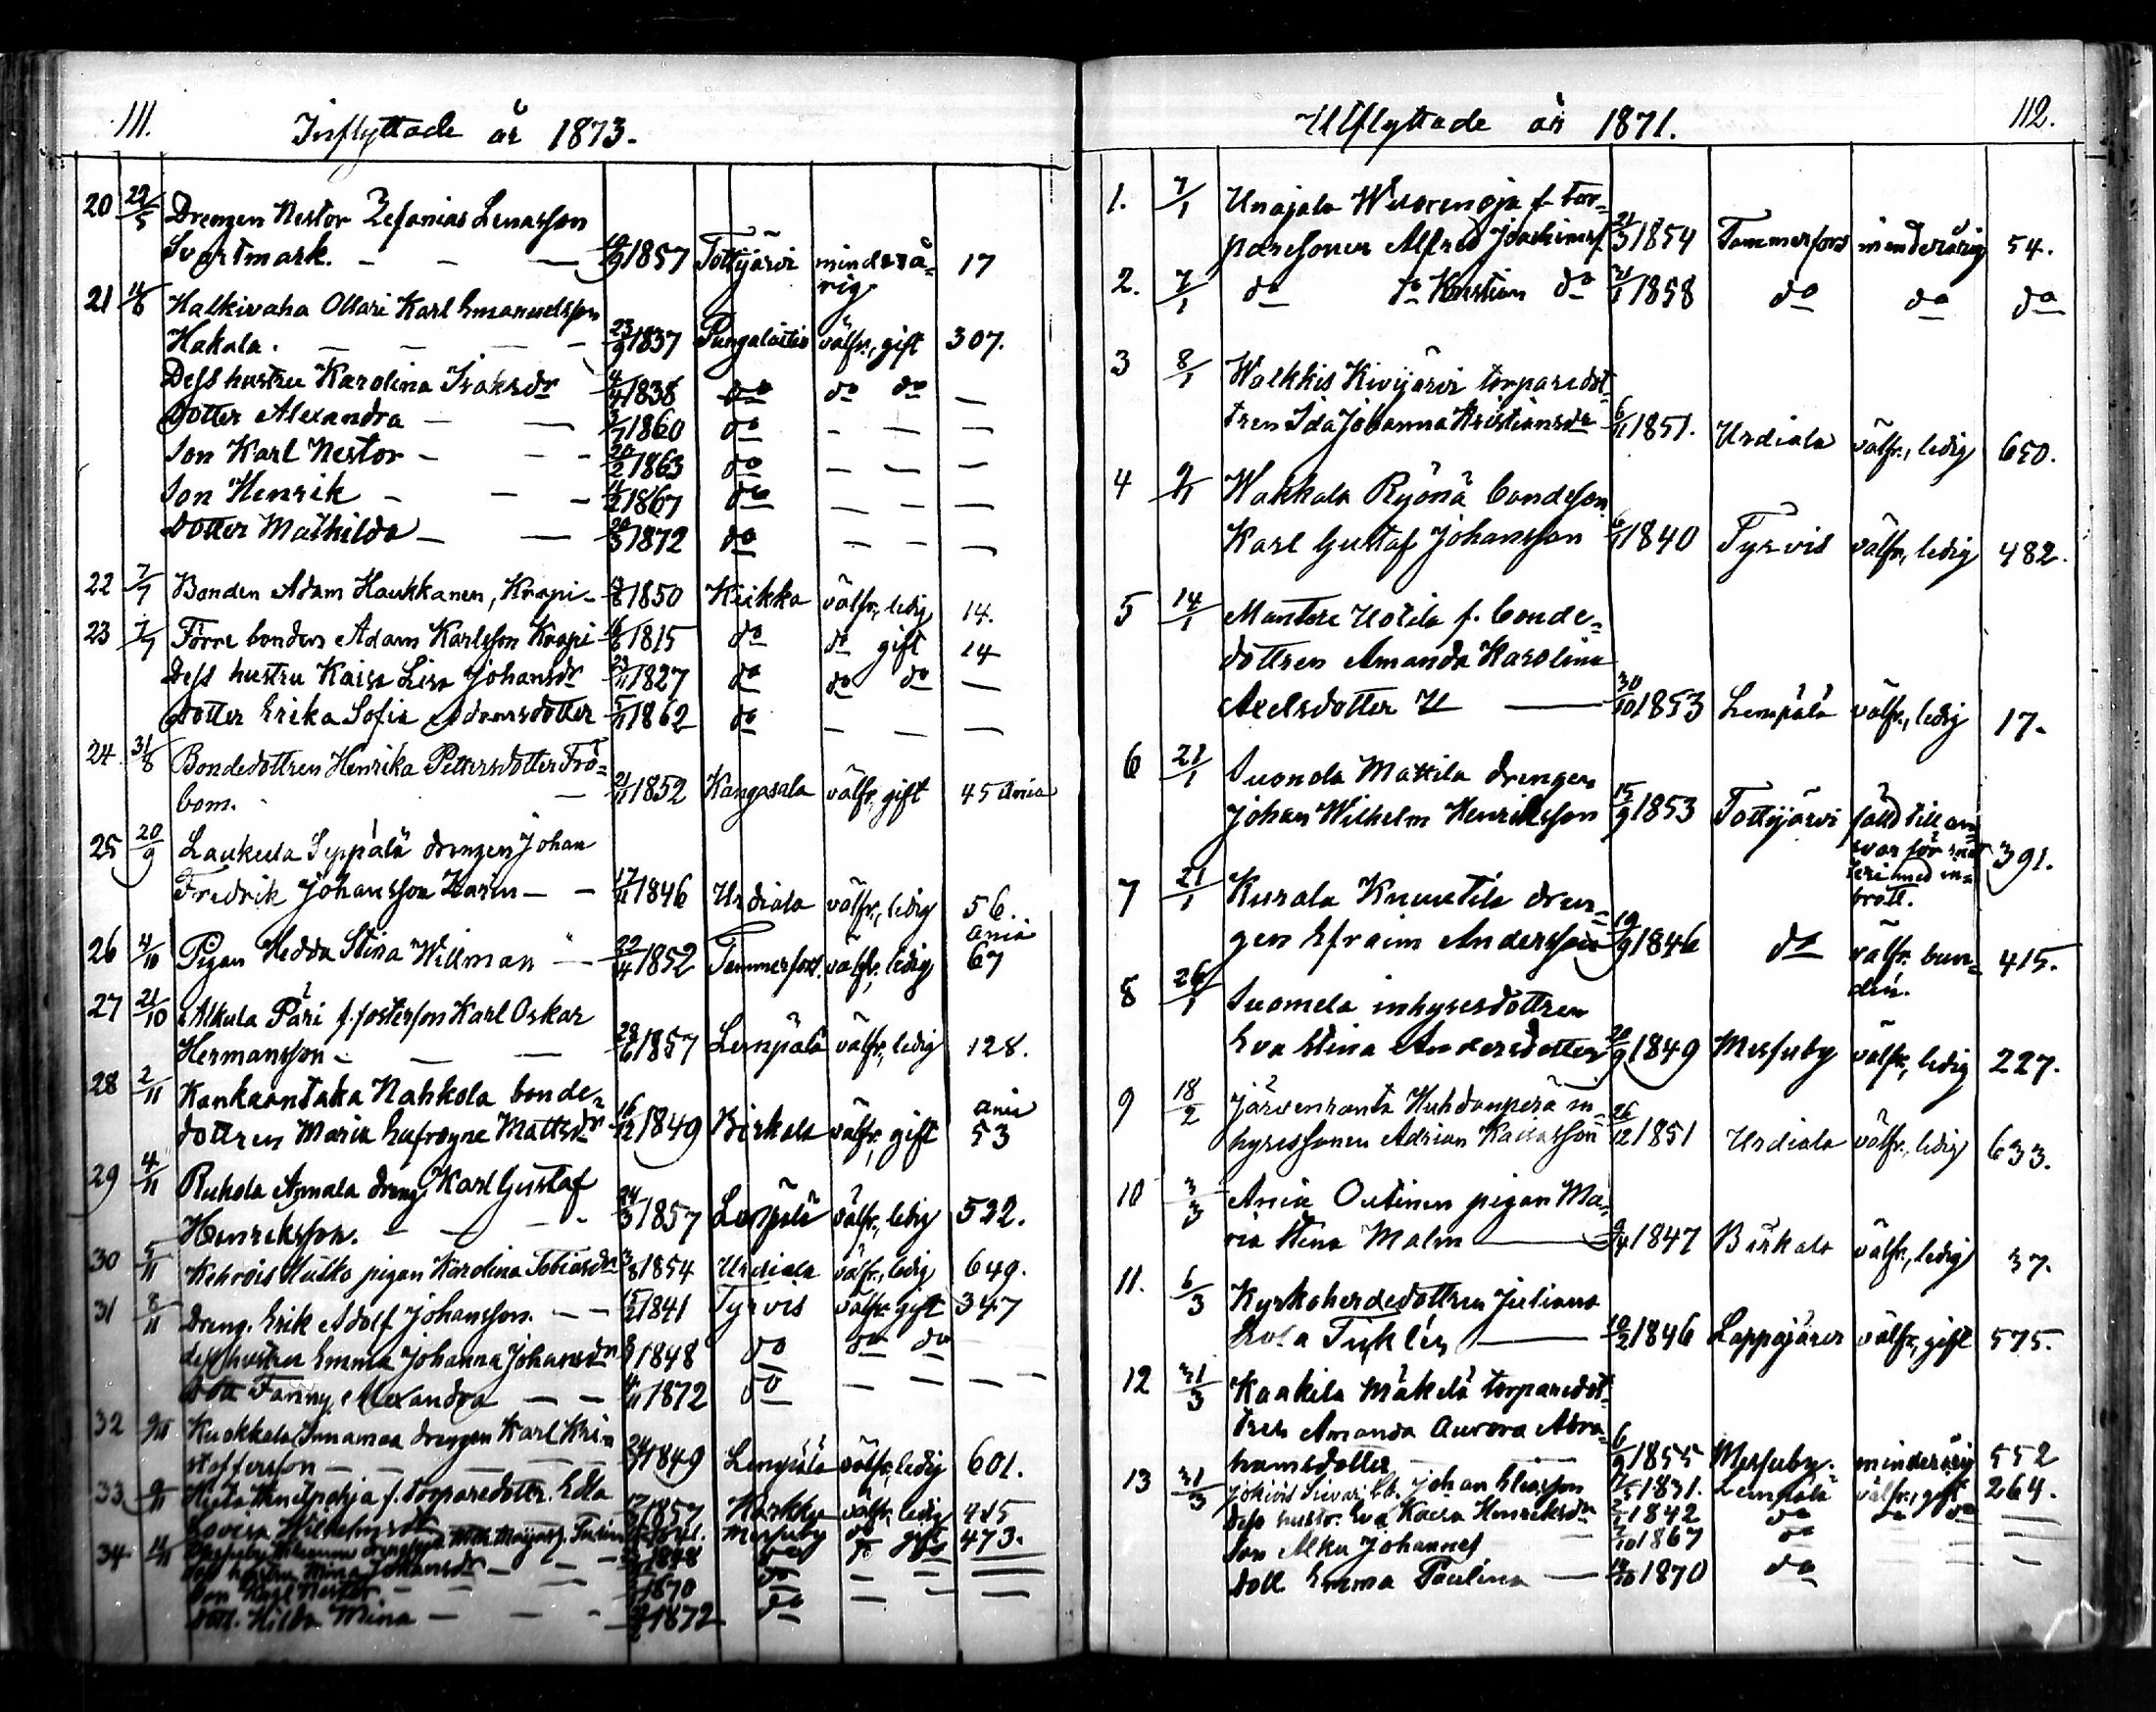 111.
Inflyttade år 1873.
20 22/5 Drengen Nestor Zefanias Lenasson
Svartmark. 1857 Tottijärvi minderå-
rig 17
21 Halkivaha Ollari Karl Emanuelsson
Hakala. 23/9 1837 Pungalaitio välfr., gift 307.
Dess hustru Karolina Isaksdr 4/4 1838 do do do
Dotter Alexandra 1860 do
Son Karl Nestor 20/2 1863 do
Son Henrik 1867 do
Dotter Mathilda 1872 do
22 7/7 Bonden Adam Haukkanen, Krapi 1850 Kiikka välfr., ledig 14.
23 7/7 Förre bonden Adam Karlsson Krapi 1815 do do gift 14
Dess hustru Kaisa Lisa Johansdr 1827 do do do
Dotter Erika Sofia Adamsdotter 1862 do
24. 31/8 Bondedottren Henrika Pettersdotter Frö-
bom. 1852 Kangasala välfr. gift 45 Ania
25 20/9 Laukula Seppälä drengen Johan
Fredrik Johansson 1846 Urdiala välfr., ledig 56.
Ania
26 4/10 Pigan Hedda Stina Willman 22/4 1852 Tammerfors. välfr., ledig 67
27 21/10 Alkula Päri f. fosterson Karl Oskar
Hermansson 28/6 1857 Lempälä välfr., ledig 128.
28 2/11 Kankaantaka Nahkola bonde-
Ania
dottren Maria Eufrosyne Mattsdr 16/12 1849 Birkala välfr., gift 53
29 4/11 Ruhola Anmala dreng. Karl Gustaf
Henriksson. 24/3 1857 Lempälä välfr., ledig 532.
30 5/11 Kehrois pigan Karolina Tobiasdr 3/8 1854 Urdiala välfr., ledig 649.
31 8/11 Dreng. Erik Adolf Johansson. 1841 Tyrvis välfr. gift 347
dess hustru Emma Johanna Johansdr 1848 do do do
Dott Fanny Alexandra 1872 do
32 9/11 Kuokkala Innamaa drengen Karl Kri-
stoffersson 1849 Lempälä välfr., ledig 601.
33 f. torparedottr. Edla
Lovisa Wilhelmsdr 1857 Karkku välfr. ledig
34 Messuby do gift 473.
dess hustru Mina Johansdr 1848 do
Son Karl Nestor 1870 do
Dott. Hilda Mina 1872 do
112.
Utflyttade år 1871.
1. 7/1 Unajala Wuorenoja f. tor-
paresonen Alfred Joachimsf. 21/3 1854 Tammerfors minderårig 54.
2. 7/1 do do Kristian do 1858 do do do
3 8/1 Walkkis Kivijärvi torparedot-
tren Ida Johanna Kristiansdr 1851. Urdiala välfr., ledig 650.
4 9/1 Wakkala Ryönä bondeson
Karl Gustaf Johansson 1840 Tyrvis välfr., ledig 482.
5 14/1 Mantere Uotila f. bonde-
dottren Amanda Karolina
Axelsdotter U 30/10 1853 Lempälä välfr., ledig 17.
6 21/1 Suonola Mattila drengen
Johan Wilhelm Henriksson 15/9 1853 Tottijärvi fälld till an-
svar för
med in-
brott. 391.
7 21/1 Kurala Knuutila dren-
gen Efraim Andersson 19/9 1846 do välfr. bun-
den. 415.
8 26/1 Suomela inhysesdottren
Eva Stina Andersdotter 20/9 1849 Messuby välfr., ledig 227.
9 18/2 Järvenranta Huhdanperä in-
hysessonen Adrian Kaisasson 26/12 1851 Urdiala välfr., ledig 633.
10 3/3 Ania Outinen pigan Ma-
ria Stina Malm 9/4 1847 Birkala välfr., ledig 37.
11. 6/3 Kyrkoherdedottren Juliana
Lovisa 1846 Lappajärvi välfr., gift 575.
12 31/3 Kaakila Mäkelä torparedot-
tren Amanda Aurora Abra-
hamsdotter 6/9 1855 Messuby. minderårig 552
13 31/3 Johan Eliasson 1831. Lempälä välfr., gift 264.
Dess hustr. Eva Kaisa Henriksdr 1842 do do do
Son Johannes 1867 do
Dott Emma Paulina 1870 do